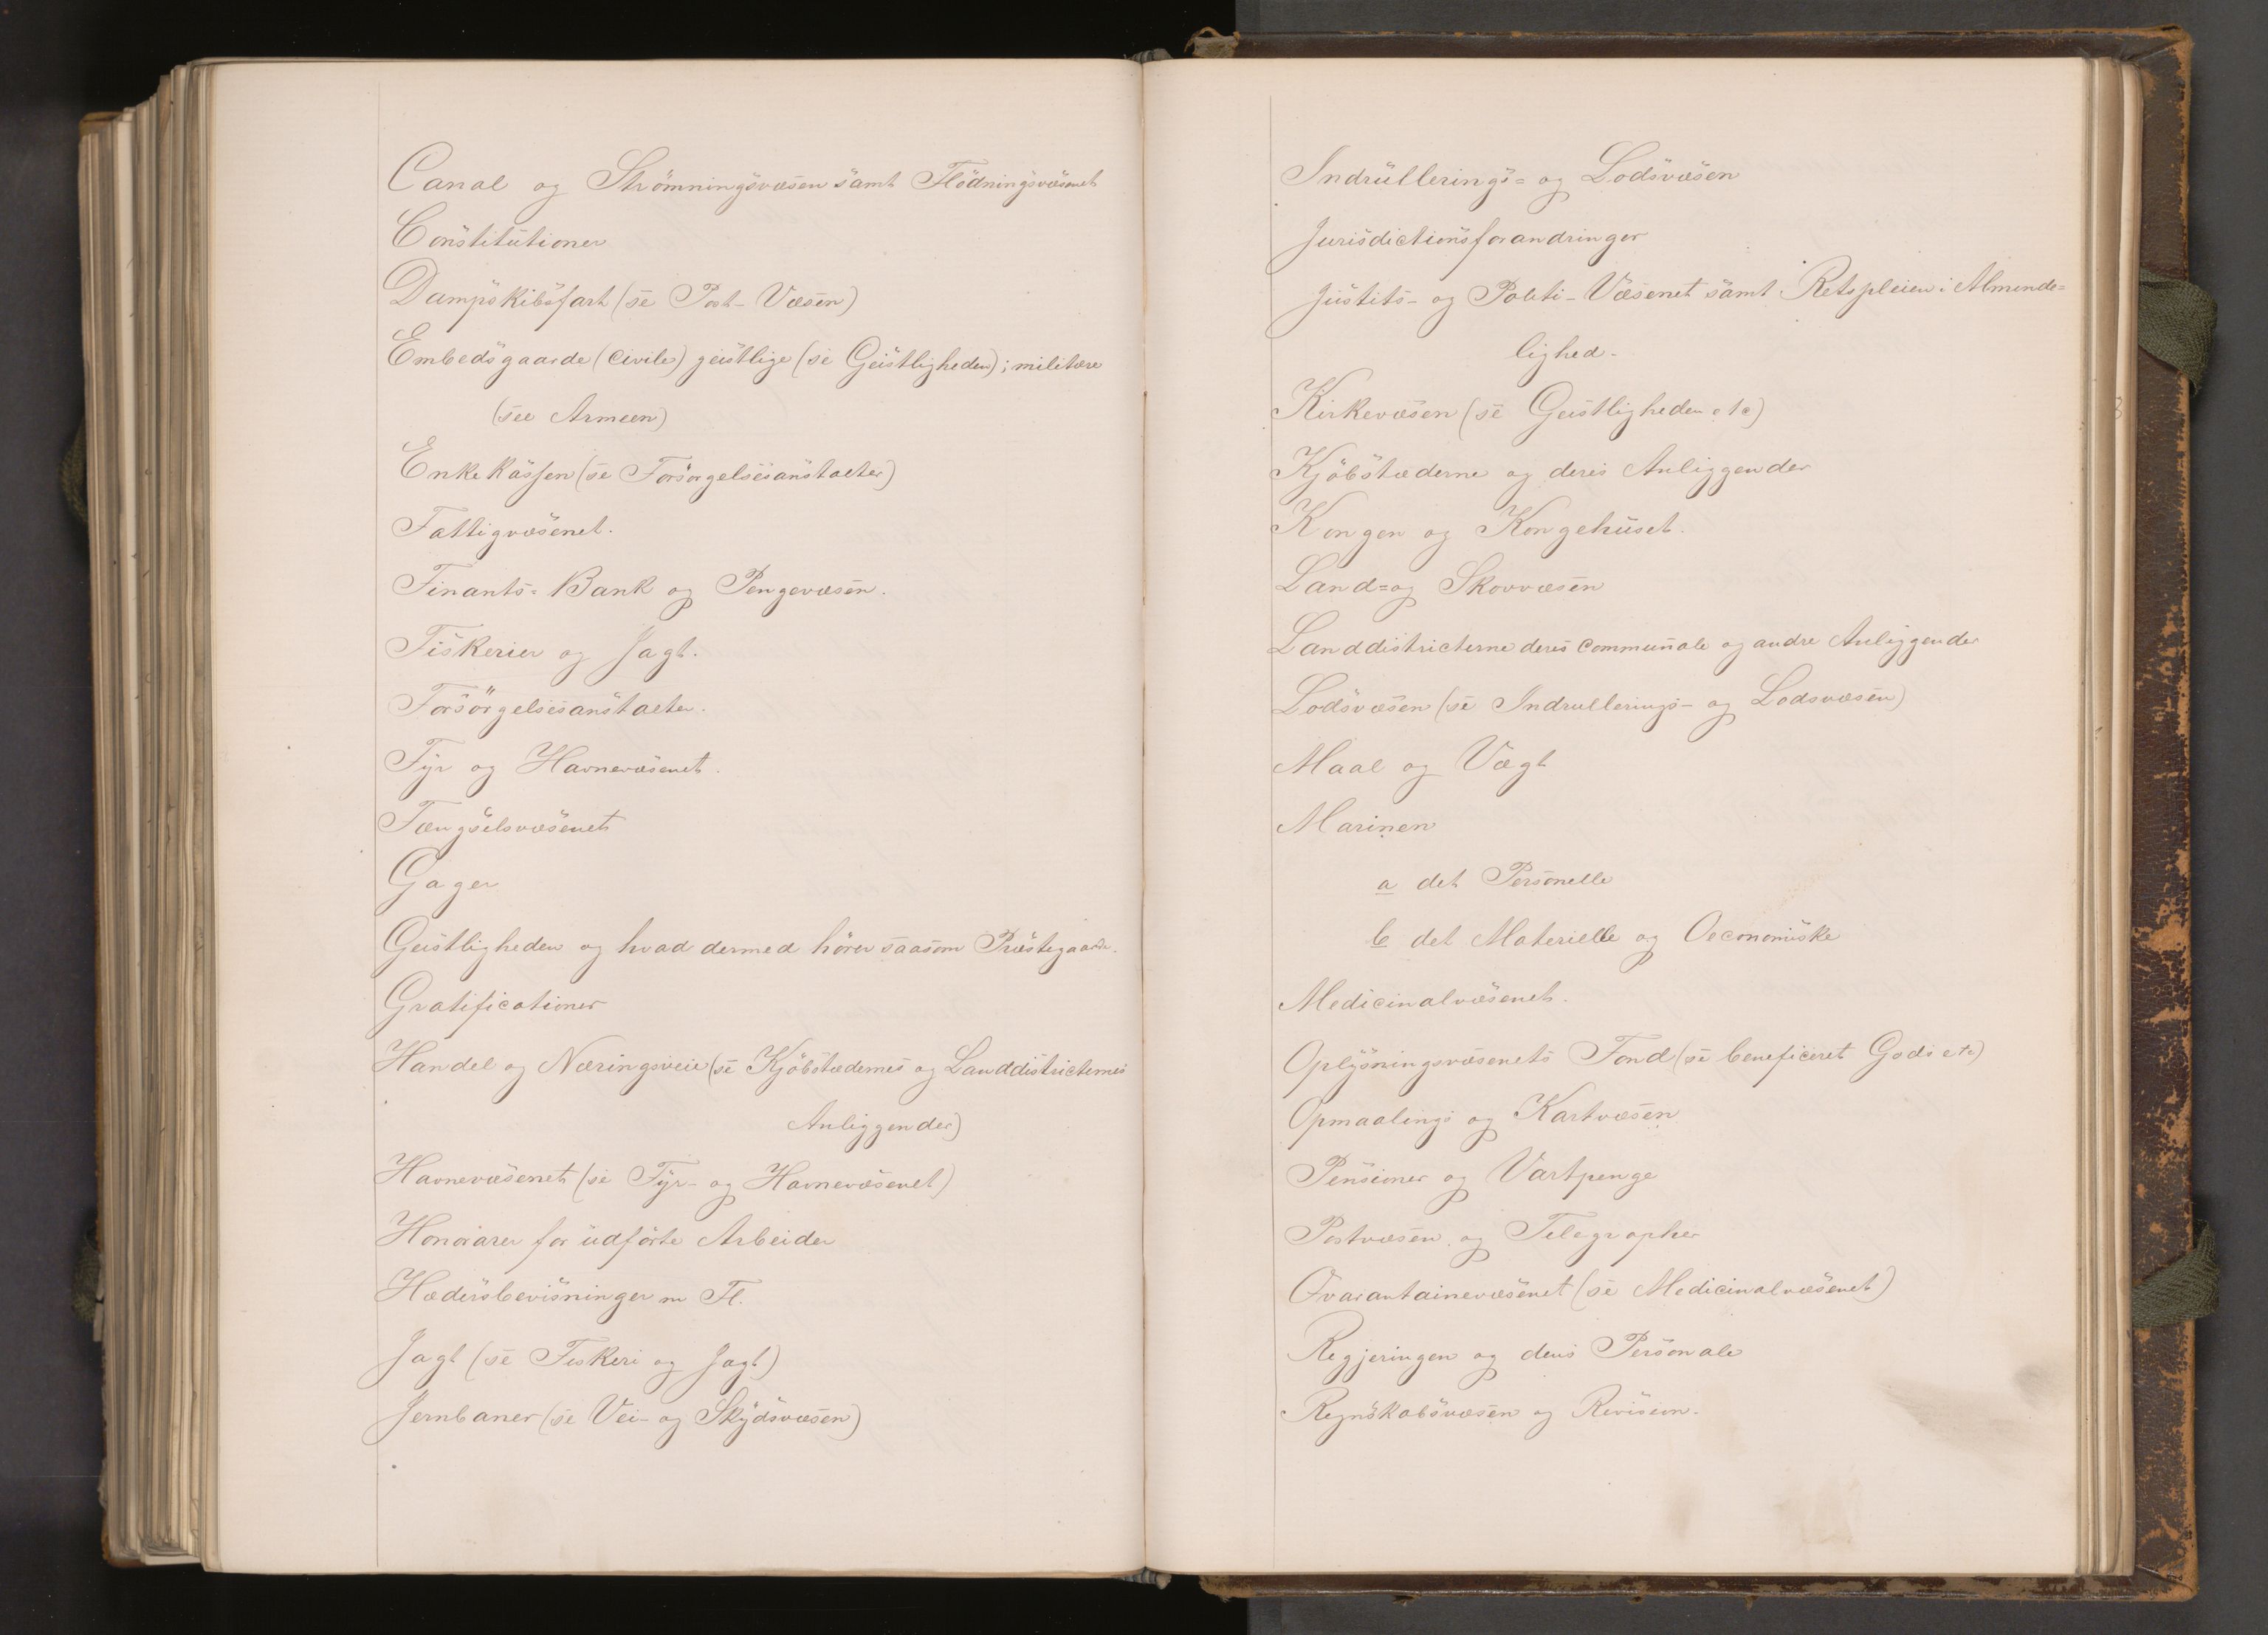 Canal og Strömningsvæsen samt Flödningsvæsenet
Constitutioner
Dampskibsfart (se Post-Væsen)
Embedsgaarde (civile) geistlige (se Geistligheden); militære
(see Armeen)
Enkekassen (se Forsörgelsesanstalter)
Fattigvæsenet.
Finants= Bank og Pengevæsen.
Fiskerier og Jagt.
Forsörgelsesanstalter.
Fyr og Havnevæsenet.
Fængselsvæsenet
Gager
Geistligheden og hvad dermed hörer saasom Præstegaarde.
Gratificationer
Handel og Næringsveie (se Kjöbstædernes og Landdistricternes
Anliggender)
Havnevæsenet (se Fyr- og Havnevæsenet)
Honorarer for udförte Arbeider
Hædersbevisninger m Fl.
Jagt (se Fiskeri og Jagt)
Jernbaner (se Vei- og Skydsvæsen)
Indrullerings= og Lodsvæsen
Jurisdictionsforandringer
Justits- og Politi-Væsenet samt Retspleien i Almende=
lighed-
Kirkevæsen (se Geistligheden etc)
Kjöbstæderne og deres Anliggender
Kongen og Kongehuset.
Land= og Skovvæsen
Landdistricterne deres communale og andre Anliggender
Lodsvæsen (se Indrullerings- og Lodsvæsen)
Maal og Vægt
Marinen
a det Personelle
b det Materielle og Oeconomiske
Medicinalvæsenet.
Oplysningsvæsenets Fond (se beneficeret Gods etc)
Opmaalings og Kartvæsen
Pensioner og Vartpenge
Postvæsen og Telegrapher
Qvarantainevæsenet (se Medicinalvæsenet)
Regjeringen og dens Personale
Regnskabsvæsen og Revision.